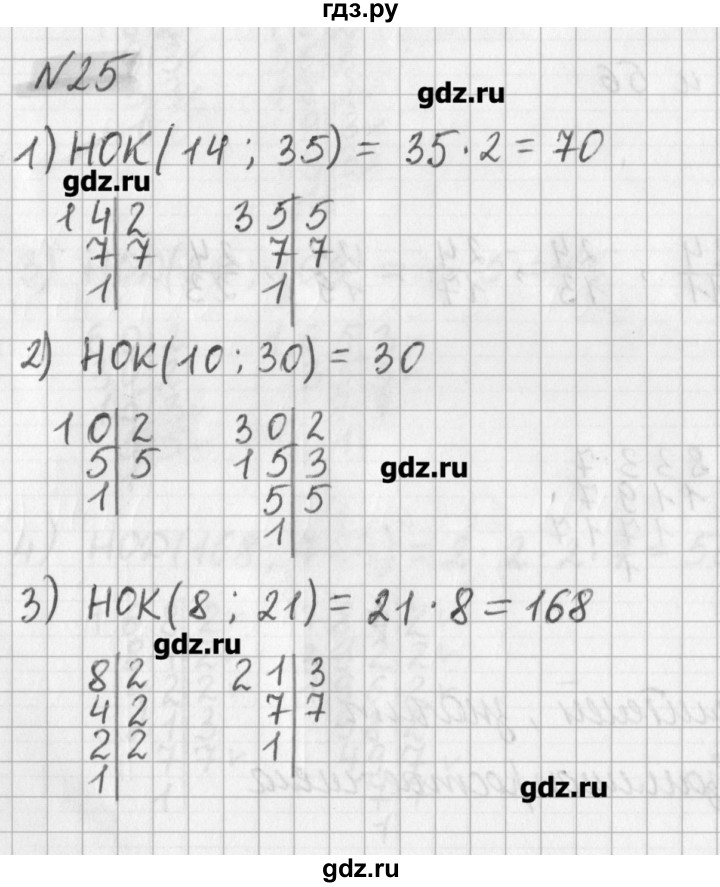 гдз.ру
№25
gdz.ru
1) НОК(14 ; 35) = 35·2 = 70
gdz.ru
14 2 35 5
7 7 7 7
1 1
2) НОК(10 ; 30) = 30
10 2 30 2
5 5 15 3
gdz.ru
1 5 5
1
3) НОК(8 ; 21) = 21·8 = 168
gdz.ru
8 2 21 3
4 2 7 7
2 2 1
1
gdz.ru
gdz.ru